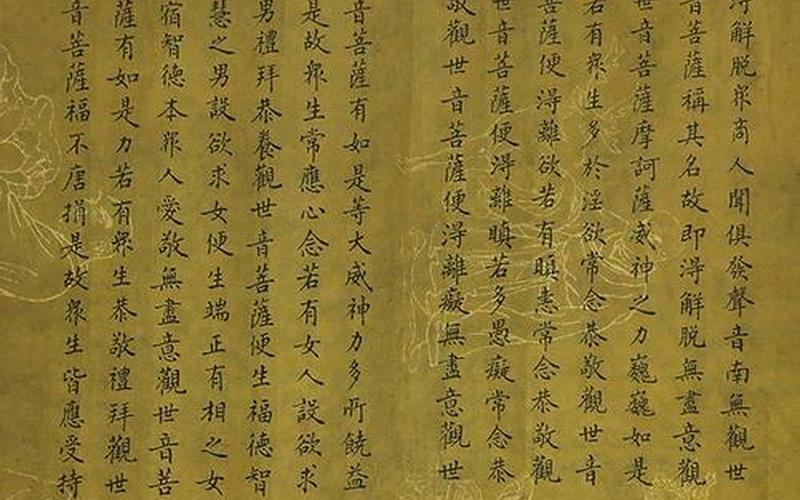 得解脱眾商人聞俱發聲言南無觀世
音菩薩稱其名故即得解脱無盡意觀
世音菩薩摩訶薩威神之力巍巍如是
若有眾生多於淫欲常念恭敬觀世音
菩薩便得離欲若有瞋恚常念恭敬觀
世音菩薩便得離瞋若多愚癡常念恭
敬觀世音菩薩便得離癡無盡意觀世
音菩薩有如是等大威神力多所饒益
是故眾生常應心念若有女人設欲求
男禮拜恭養觀世音菩薩便生福德智
慧之男設欲求女便生端正有相之女
宿智德本眾人愛敬無盡意觀世音菩
薩有如是力若有眾生恭敬禮拜觀世
音菩薩福不唐捐是故眾生皆應受持